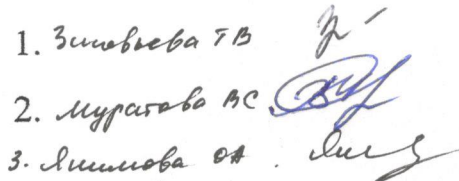 1. Зиновьева ТВ
2. Муратова ВС
3. Якимова ОА.